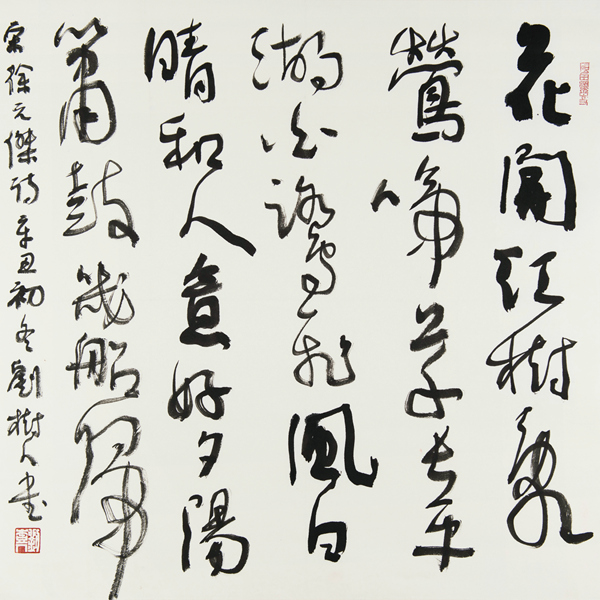 花開紅樹亂
鶯啼草長平
湖白鷺飛風日
晴和人意好夕陽
簫鼓幾船歸
宋徐元傑詩辛丑初冬劉樹人書